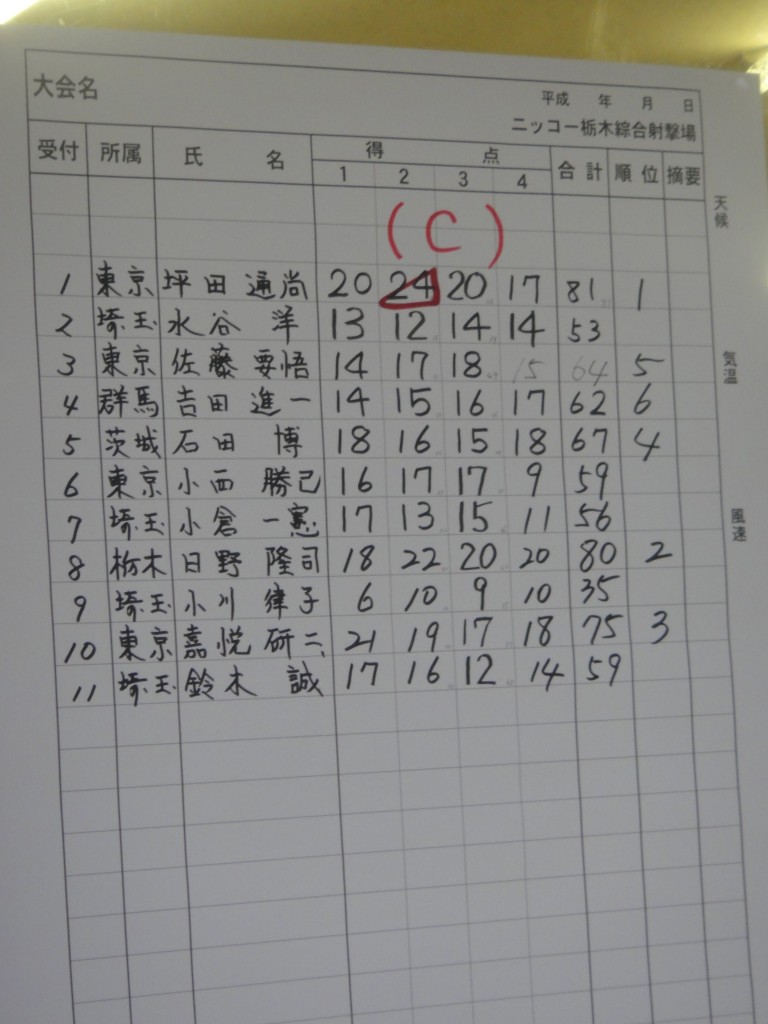 大会名
平成 年 月 日
ニッコー栃木綜合射撃場
受付 所属 氏名 得点 合計 順位 摘要
1 2 3 4
天候
(C)
1 東京 坪田 通尚 20 24 20 17 81 1
2 埼玉 水谷 洋 13 12 14 14 53
3 東京 佐藤 要悟 14 17 18 15 64 5
気温
4 群馬 吉田 進一 14 15 16 17 62 6
5 茨城 石田 博 18 16 15 18 67 4
6 東京 小西 勝己 16 17 17 9 59
7 埼玉 小倉 一憲 17 13 15 11 56
風速
8 栃木 日野 隆司 18 22 20 20 80 2
9 埼玉 小川 律子 6 10 9 10 35
10 東京 嘉悦 研二 21 19 17 18 75 3
11 埼玉 鈴木 誠 17 16 12 14 59